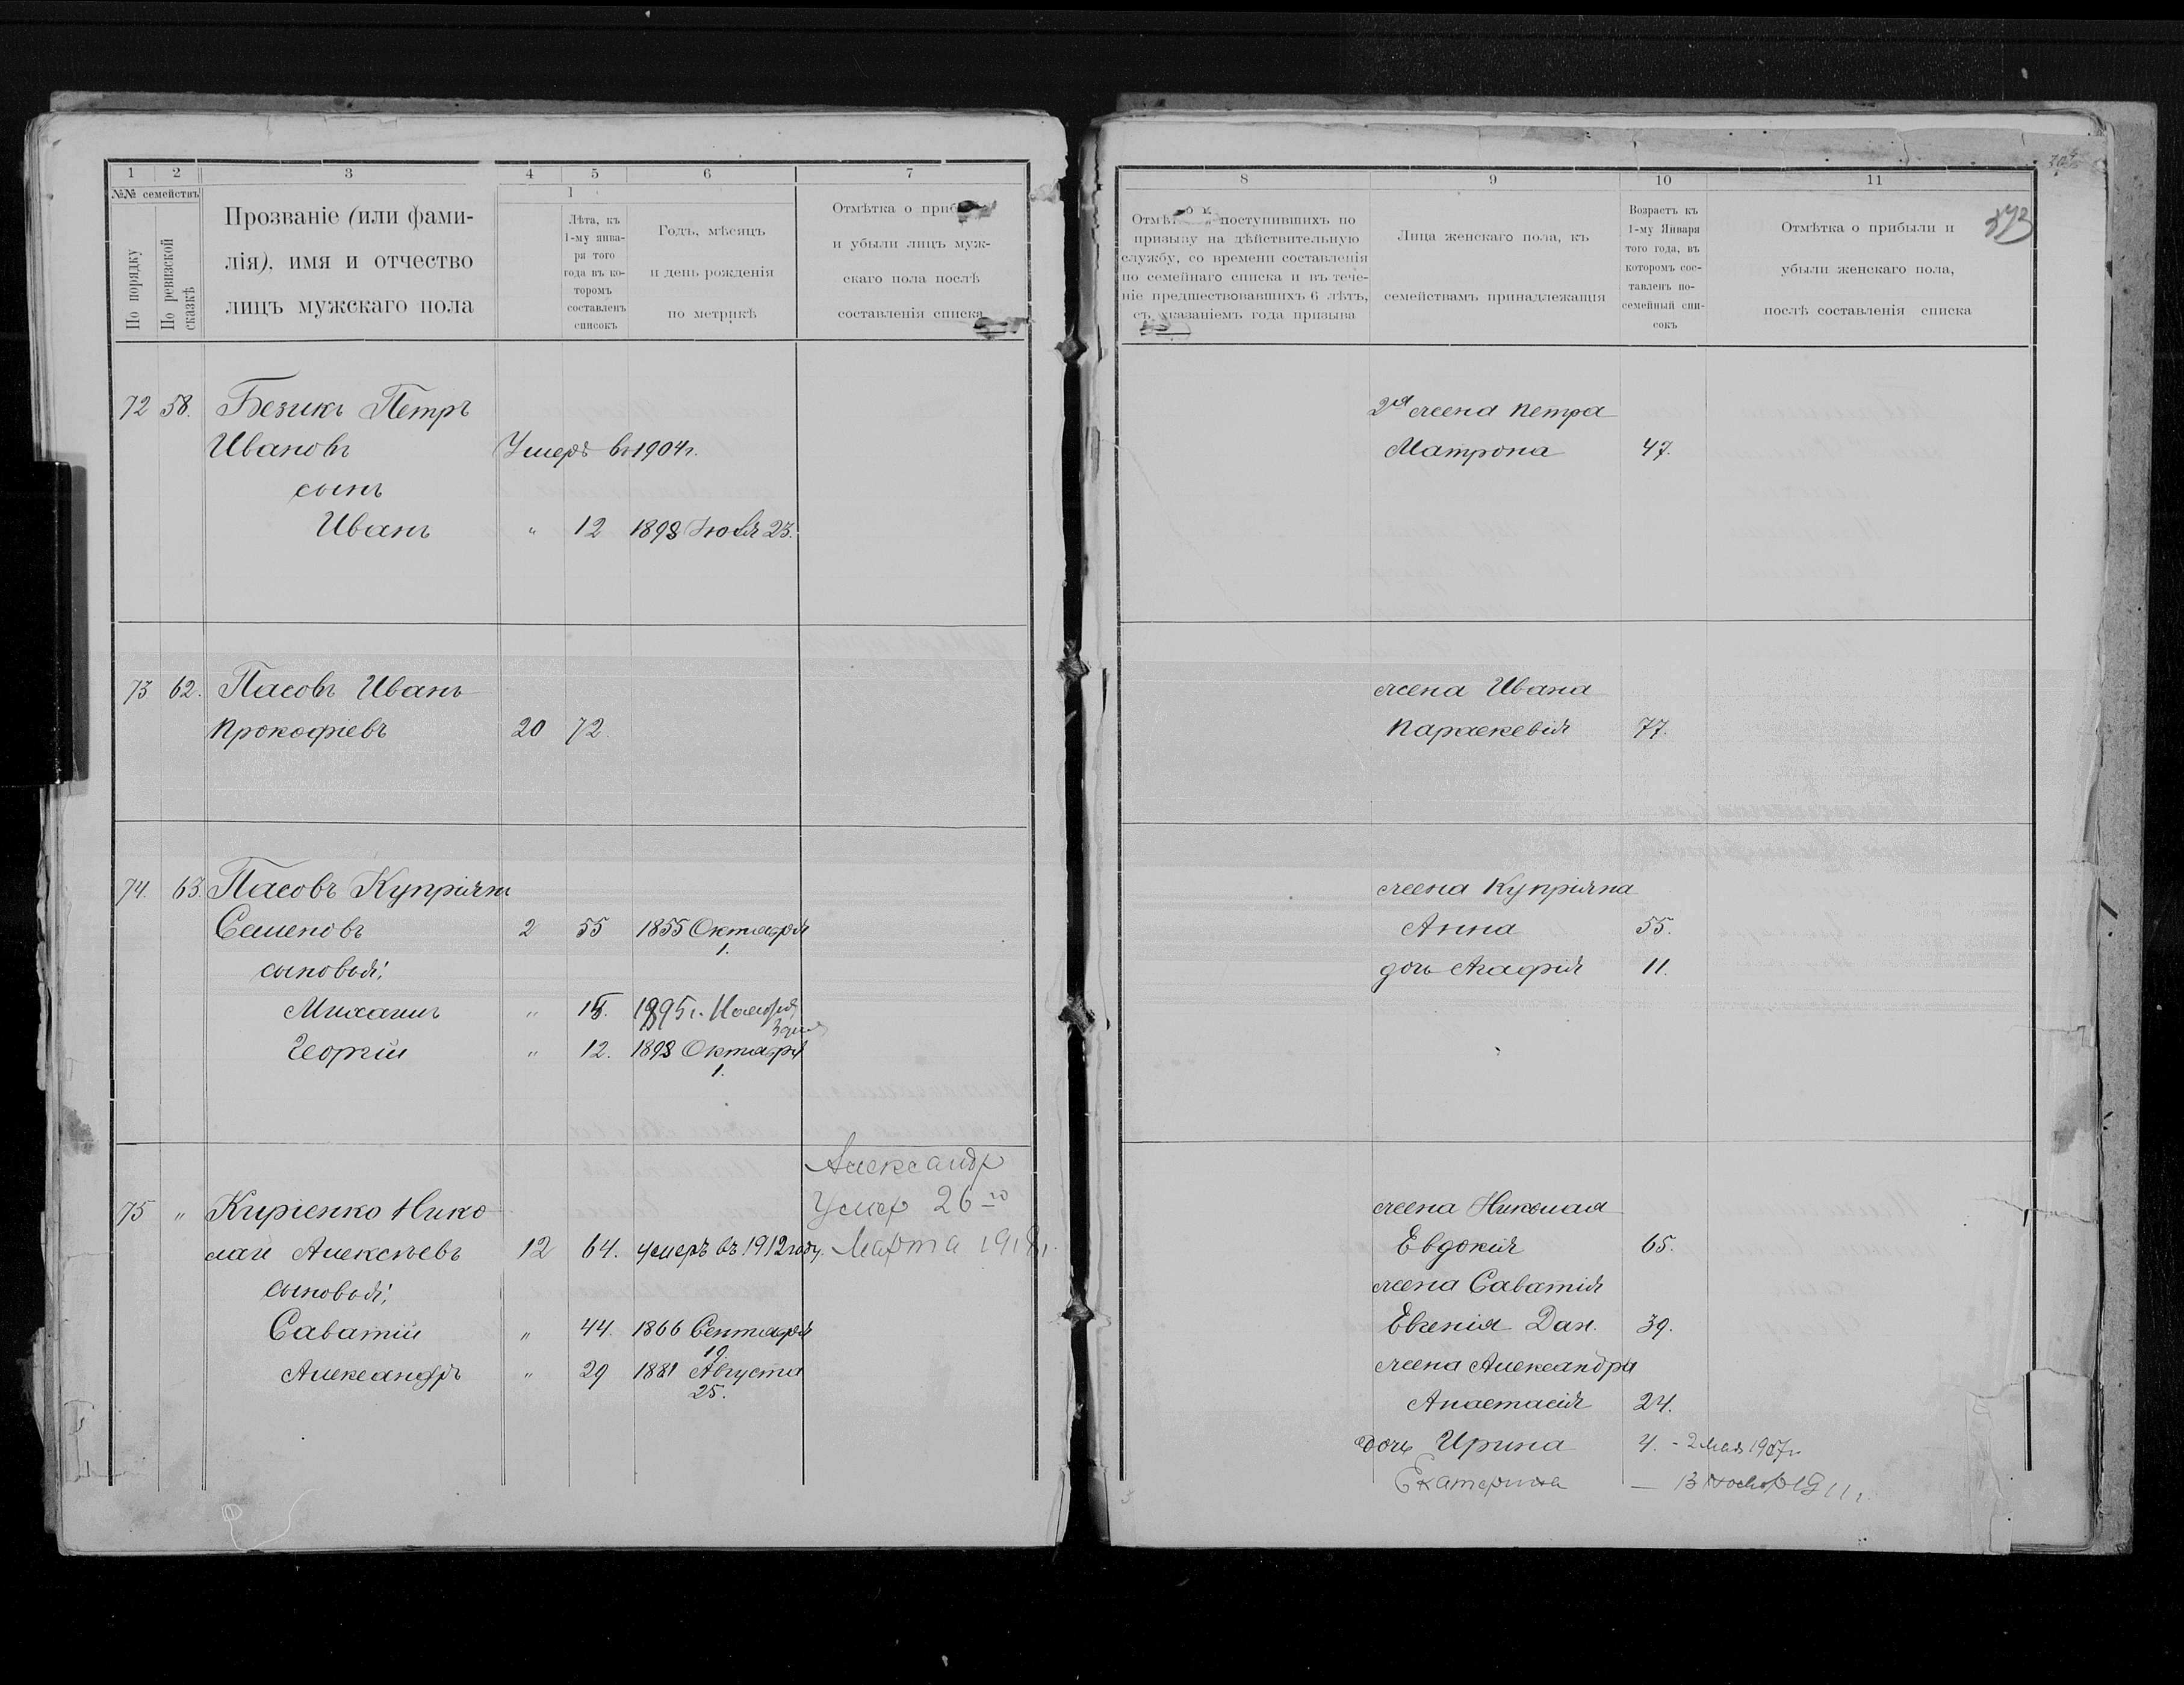 1 2 3 4 5 6 7
№№ семействъ
По порядку
По ревизской сказкѣ
Прозваніе (или фами-
лія), имя и отчество
лицъ мужскаго пола
1
Лѣта, къ
1-му янва-
ря того
года въ ко-
торомъ
составленъ
списокъ
Годъ, мѣсяцъ
и день рожденія
по метрикѣ
Отмѣтка о
и убыли лицъ муж-
скаго пола послѣ
составленія списка
72 58. Безикъ Петръ
Ивановъ Умеръ въ 1904 г.
сынъ
Иванъ " 12 1898 Іюля 23.
73 62. Пасовъ Иванъ
Прокофіевъ 20 72.
74. 63. Пасовъ Купріянъ
Семеновъ 2 55 1855 Октября
1.
сыновья:
Михаилъ " 15. 1895 г. Ноября
Георгій " 12. 1898 Октября
1.
Александр
Умер 26 го
75 " Киріенко Нико
лай Алексѣевъ 12 64. умеръ въ 1912 году. Марта 1918 г.
сыновья:
Саватій " 44. 1866 Сентября
19.
Александръ " 29 1881 Августа
25.
8 9 10 11
304
373
поступившихъ по
призыву на дѣйствительную
службу, со времени составленія
по семейнаго списка и въ тече-
ніе предшествовавшихъ 6 лѣтъ,
съ указаніемъ года призыва
Лица женскаго пола, къ
семействамъ принадлежащія
Возрастъ къ
1-му Января
того года, въ
которомъ сос-
тавленъ по-
семейный спи-
сокъ
Отмѣтка о прибыли и
убыли женскаго пола,
послѣ составленія списка
2я жена Петра
Матрона 47.
жена Ивана
Параскевія 77.
жена Купріяна
Анна 55.
дочь Агафія 11.
жена Николая
Евдокія 65.
жена Саватія
Евгенія Дан. 39.
жена Александра
Анастасія 24.
дочь Ирина 4. - 2 Мая 1907 г.
Екатерина — 13 1911 г.